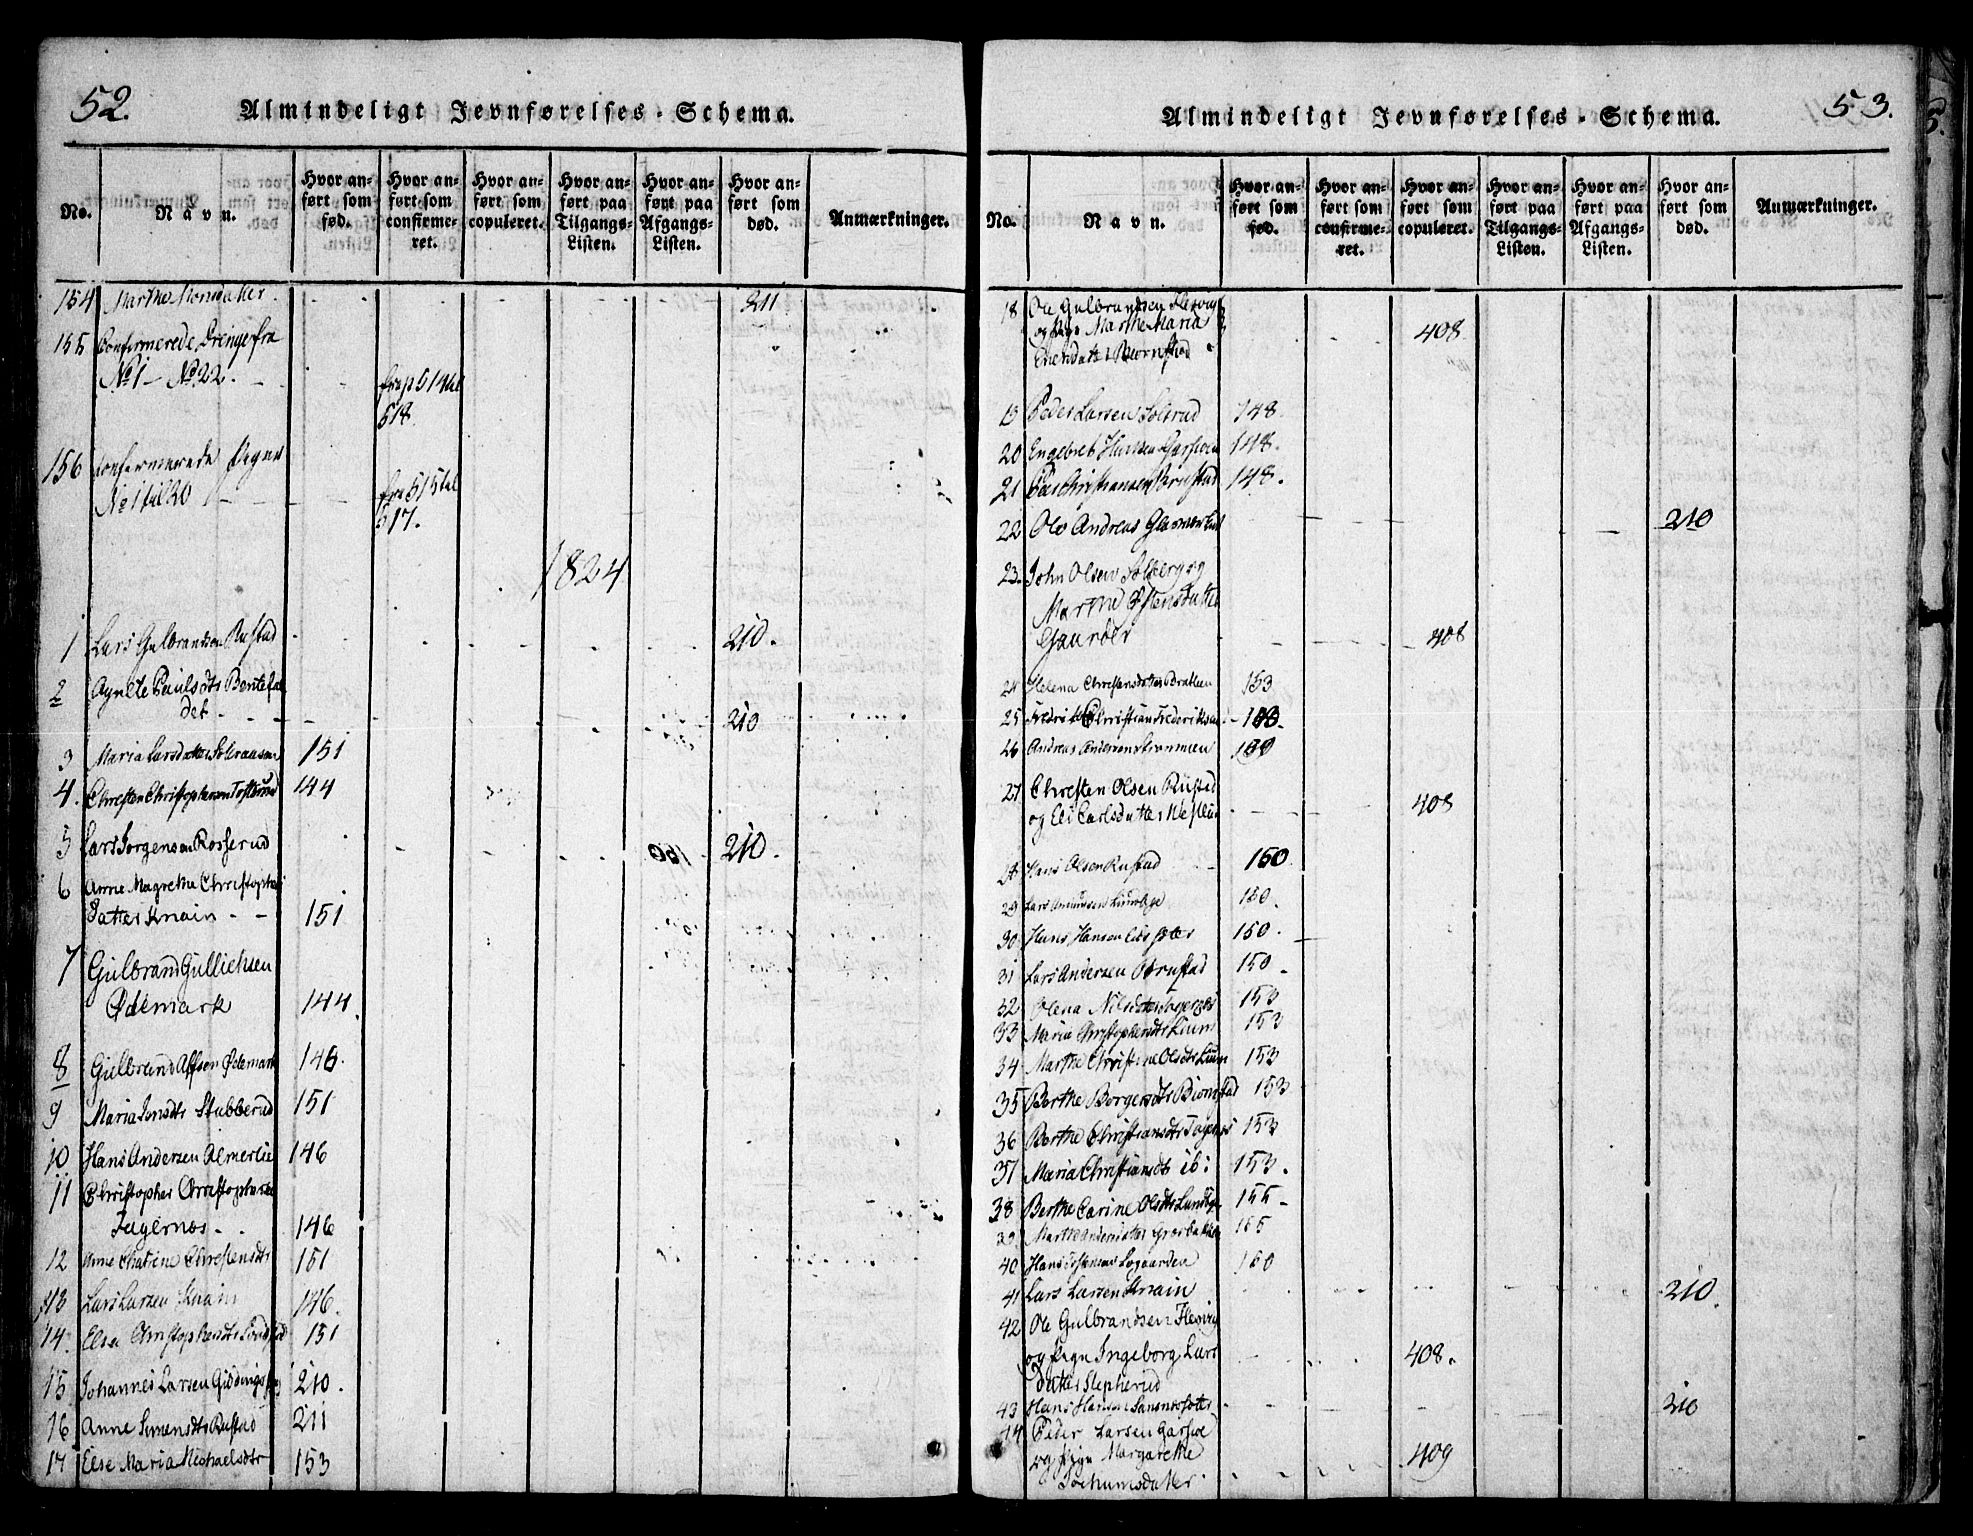 52.
Almindeligt Jevnførelses-Schema.
No.
Navn.
Hvor an-
ført som
fød.
Hvor an-
ført som
confirme-
ret.
Hvor an-
ført som
copuleret.
Hvor an-
ført paa
Tilgangs-
Listen.
Hvor an-
ført paa
Afgangs-
Listen.
Hvor an-
ført som
død.
Anmærkninger.
154 Marthe Monsdatter 211
155 Confirmerede Drenge fra
No 1 - No 22. fra p 514 til
518.
156 Confirmerede Piger
No 1 til 20 fra 515 til
517.
1824
1 Lars Gulbrandsen Rustad 210.
2 Agnete Paulsdtr
det 210
3 Maria Larsdatter 151
4. Christen Christophersen 144
5 Lars Jørgensen Rosserud 210.
6 Anne Magrethe Christophers
Datter Knain 151
7 Gulbrand Gullichsen
Ødemark 144.
8 Gulbrand Ødemark 146.
9 Maria Jensdtr Stubberud 151
10 Hans Andersen Almerlie 146
11 Christopher Christophersen
Jagernes 146
12 Anne Chatrine Christensdtr 151
13 Lars Larsen Knain 146.
14. Else Christophersdtr 151
15 Johannes Larsen 210.
16 Anne Simensdtr Rustad 211
17 Else Maria Michaelsdtr 153
53.
Almindeligt Jevnførelses-Schema.
No.
Navn.
Hvor an-
ført som
fød.
Hvor an-
ført som
confirme-
ret.
Hvor an-
ført som
copuleret.
Hvor an-
ført paa
Tilgangs-
Listen.
Hvor an-
ført paa
Afgangs-
Listen.
Hvor an-
ført som
død.
Anmærkninger.
18 Ole Gulbrandsen Flesvig
og Pige Marthe Maria 408
19 Peder Larsen Solerud 148.
20 Engebret Hansen 148.
21 148.
22 Ole Andreas 210
23. John Olsen Solberg og
Marthe Østensdatter
408
24 Helena Christensdatter Brathen 153
25 Fredrik Christian Frederiksen
26 Andreas Andersen Strømmen
27 Christen Olsen Rustad
og Eli Carlsdatter 408
28 Hans Olsen Rustad 150
29 Lars Amundsen Lundbye 150.
30 Hans Hansen 150.
31 Lars Andersen Ørnstad 150
32 Olena Nilsdtr 153
33 Maria Christophersdtr Lium 153
34 Marthe Christine Olsdtr Lium 153
35 Berthe Borgersdtr Biørnstad 153
36 Berthe Christiansdtr 153
37 Maria Christiansdtr ib: 153.
38 Berthe Carine Olsdtr Lundbye 155
39 Marthe Andersdatter 155
40 Hans 150
41 Lars Larsen Knain 210.
42 Ole Gulbrandsen Flesvig
og Pige Ingeborg Lars 408.
datter Slepherud
43 Hans Hansen 210
44 Peder Larsen Garsoe
og Pige Margarethe 409
Jochumsdatter